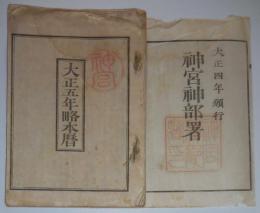 大正四年頒行
神宮神部署
大正五年略本暦